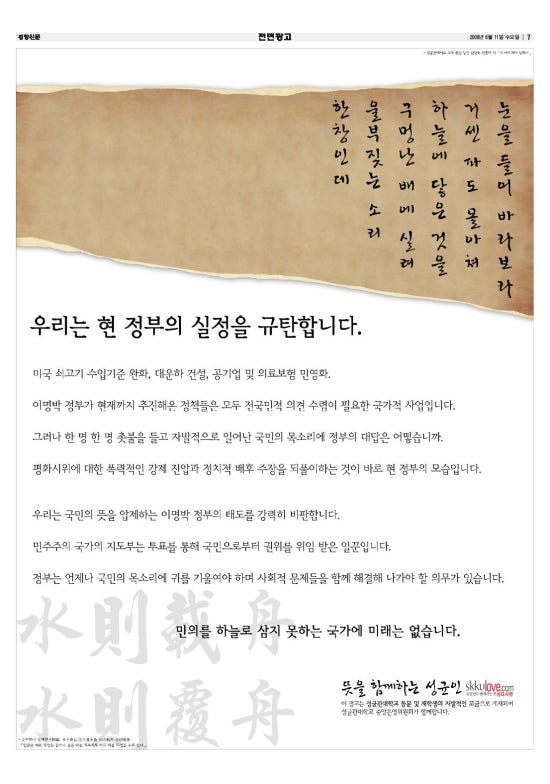 경향신문
전면광고
2008년 6월 11일 수요일 | 7
눈을 들어 바라보라
거센 파도 몰아쳐
하늘에 닿은 것을
구멍난 배에 실려
울부짖는 소리
한창인데
우리는 현 정부의 실정을 규탄합니다.
미국 쇠고기 수입기준 완화, 대운하 건설, 공기업 및 의료보험 민영화.
이명박 정부가 현재까지 추진해온 정책들은 모두 전국민적 의견 수렴이 필요한 국가적 사업입니다.
그러나 한 명 한 명 촛불을 들고 자발적으로 일어난 국민의 목소리에 정부의 대답은 어떻습니까.
평화시위에 대한 폭력적인 강제 진압과 정치적 배후 주장을 되풀이하는 것이 바로 현 정부의 모습입니다.
우리는 국민의 뜻을 압제하는 이명박 정부의 태도를 강력히 비판합니다.
민주주의 국가의 지도부는 투표를 통해 국민으로부터 권위를 위임 받은 일꾼입니다.
정부는 언제나 국민의 목소리에 귀를 기울여야 하며 사회적 문제들을 함께 해결해 나가야 할 의무가 있습니다.
水則載舟
민의를 하늘로 삼지 못하는 국가에 미래는 없습니다.
水則覆舟
뜻을 함께하는 성균인 skkulove.com
이 광고는 성균관대학교 동문 및 재학생의 자발적인 모금으로 기재되며
성균관대학교 중앙운영위원회가 함께합니다.